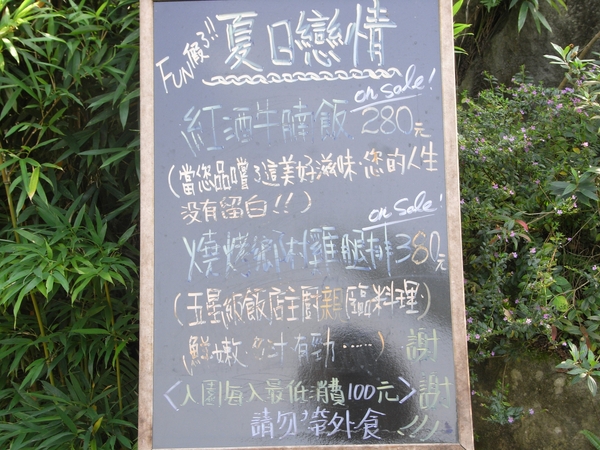 FUN假了!! 夏日戀情
on sale!
紅酒牛腩飯 280元
(當您品嚐了這美好滋味,您的人生
沒有留白!!)
on sale!
燒烤鄉村雞腿排380元
(五星級飯店主廚親臨料理)
鮮嫩多汁有勁……) 謝
<入園每人最低消費100元> 謝
請勿帶外食 !!!